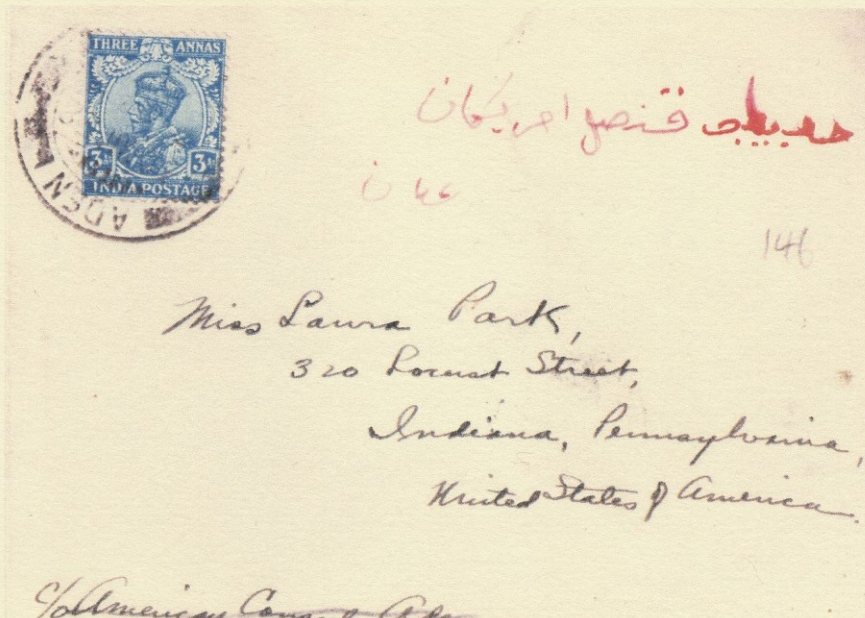 THREE ANNAS
3A 3A
INDIA POSTAGE
ADEN
قنصل امريكان
146
Miss Laura Park,
320 Locust Street,
Indiana, Pennsylvania,
United States of America.
c/o American Consul Aden